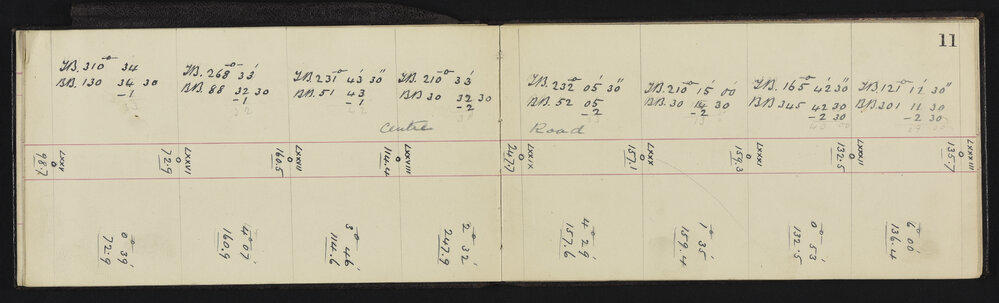 11
F.B. 310° 34
B.B. 130 34 30
-1
F.B. 268° 33'
B.B. 88 32 30
-1
32
F.B. 231° 43' 30"
B.B. 51 43
-1
22
F.B. 210° 33'
B.B 30 32 30
-2
Centre
F.B. 232° 05' 30"
B.B. 52 05
-2
Road
F.B. 210° 15' 00
B.B. 30 14 30
-2
F.B. 165° 42' 30"
B.B 345 42 30
-2 30
F.B. 121° 11' 30"
B.B 301 11 30
-2 30
LXXV
98.7
LXXVI
72.9
LXXVII
160.5
LXXVIII
114.4
LXXIX
247.7
LXXX
157.1
LXXXI
159.3
LXXXII
132.5
LXXXIII
135.7
0° 39'
72.9
4° 07'
160.9
3° 46'
114.6
2° 32'
247.9
4° 29'
157.6
1° 35'
159.4
0° 53'
132.5
6° 00'
136.4